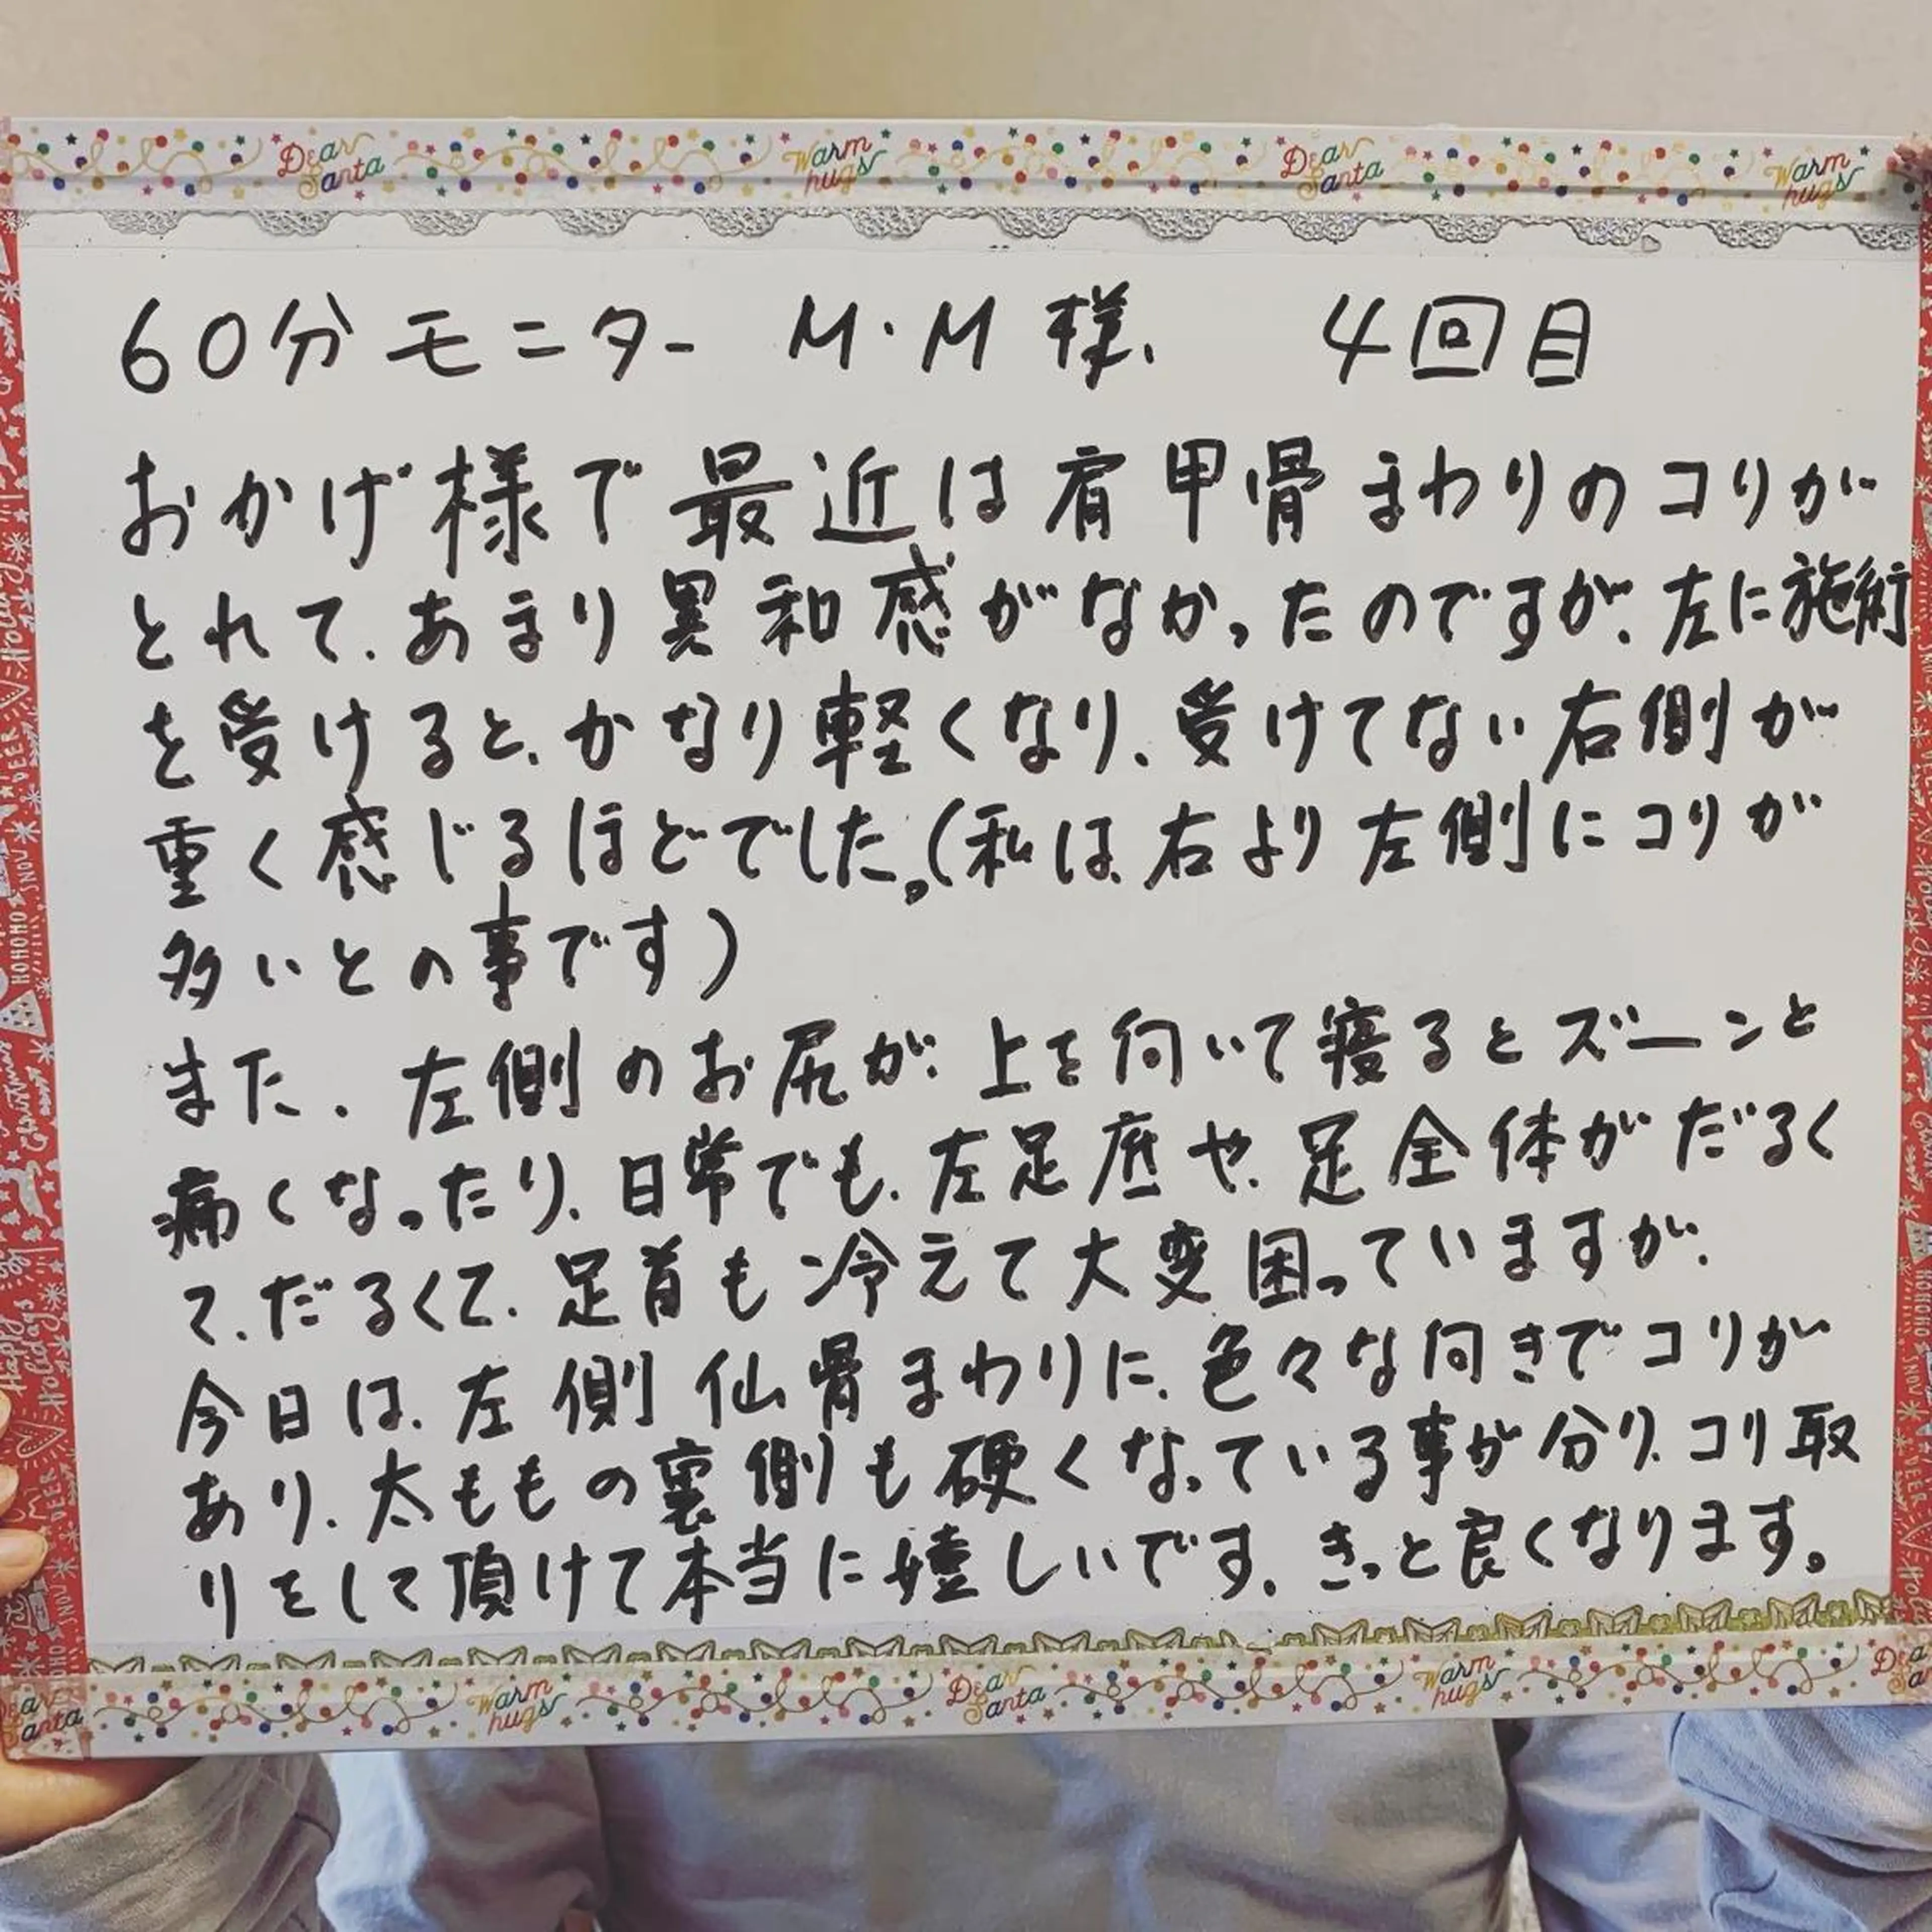 Dear Santa Warm hugs Dear Santa Warm hugs
60分モニター M・M様、 4回目
おかげ様で最近は肩甲骨まわりのコリが
とれて、あまり異和感がなかったのですが、左に施術
を受けると、かなり軽くなり、受けてない右側が
重く感じるほどでした。(私は、右より左側にコリが
多いとの事です)
また、左側のお尻が、上を向いて寝るとズーンと
痛くなったり、日常でも、左足底や、足全体がだるく
て、だるくて、足首も冷えて大変困っていますが、
今日は、左側仙骨まわりに、色々な向きでコリが
あり、太ももの裏側も硬くなっている事が分り、コリ取
りをして頂けて本当に嬉しいです、きっと良くなります。
Warm hugs Dear Santa Warm hugs